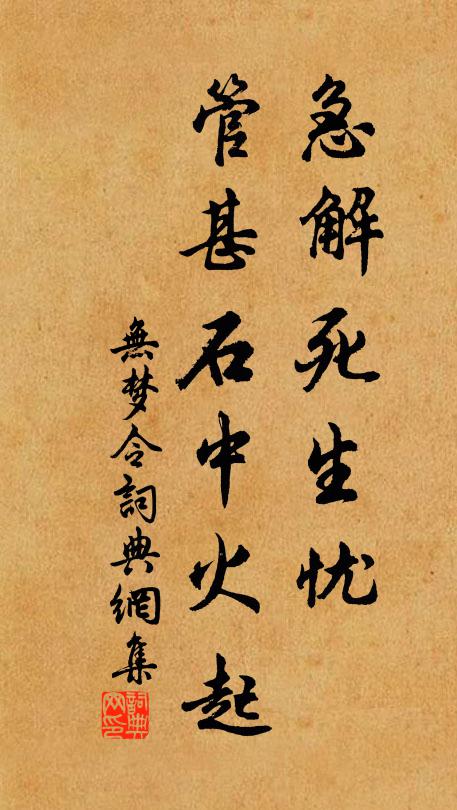 急解死生忧
管甚石中火起
無梦令詞典網集
詞典
网印